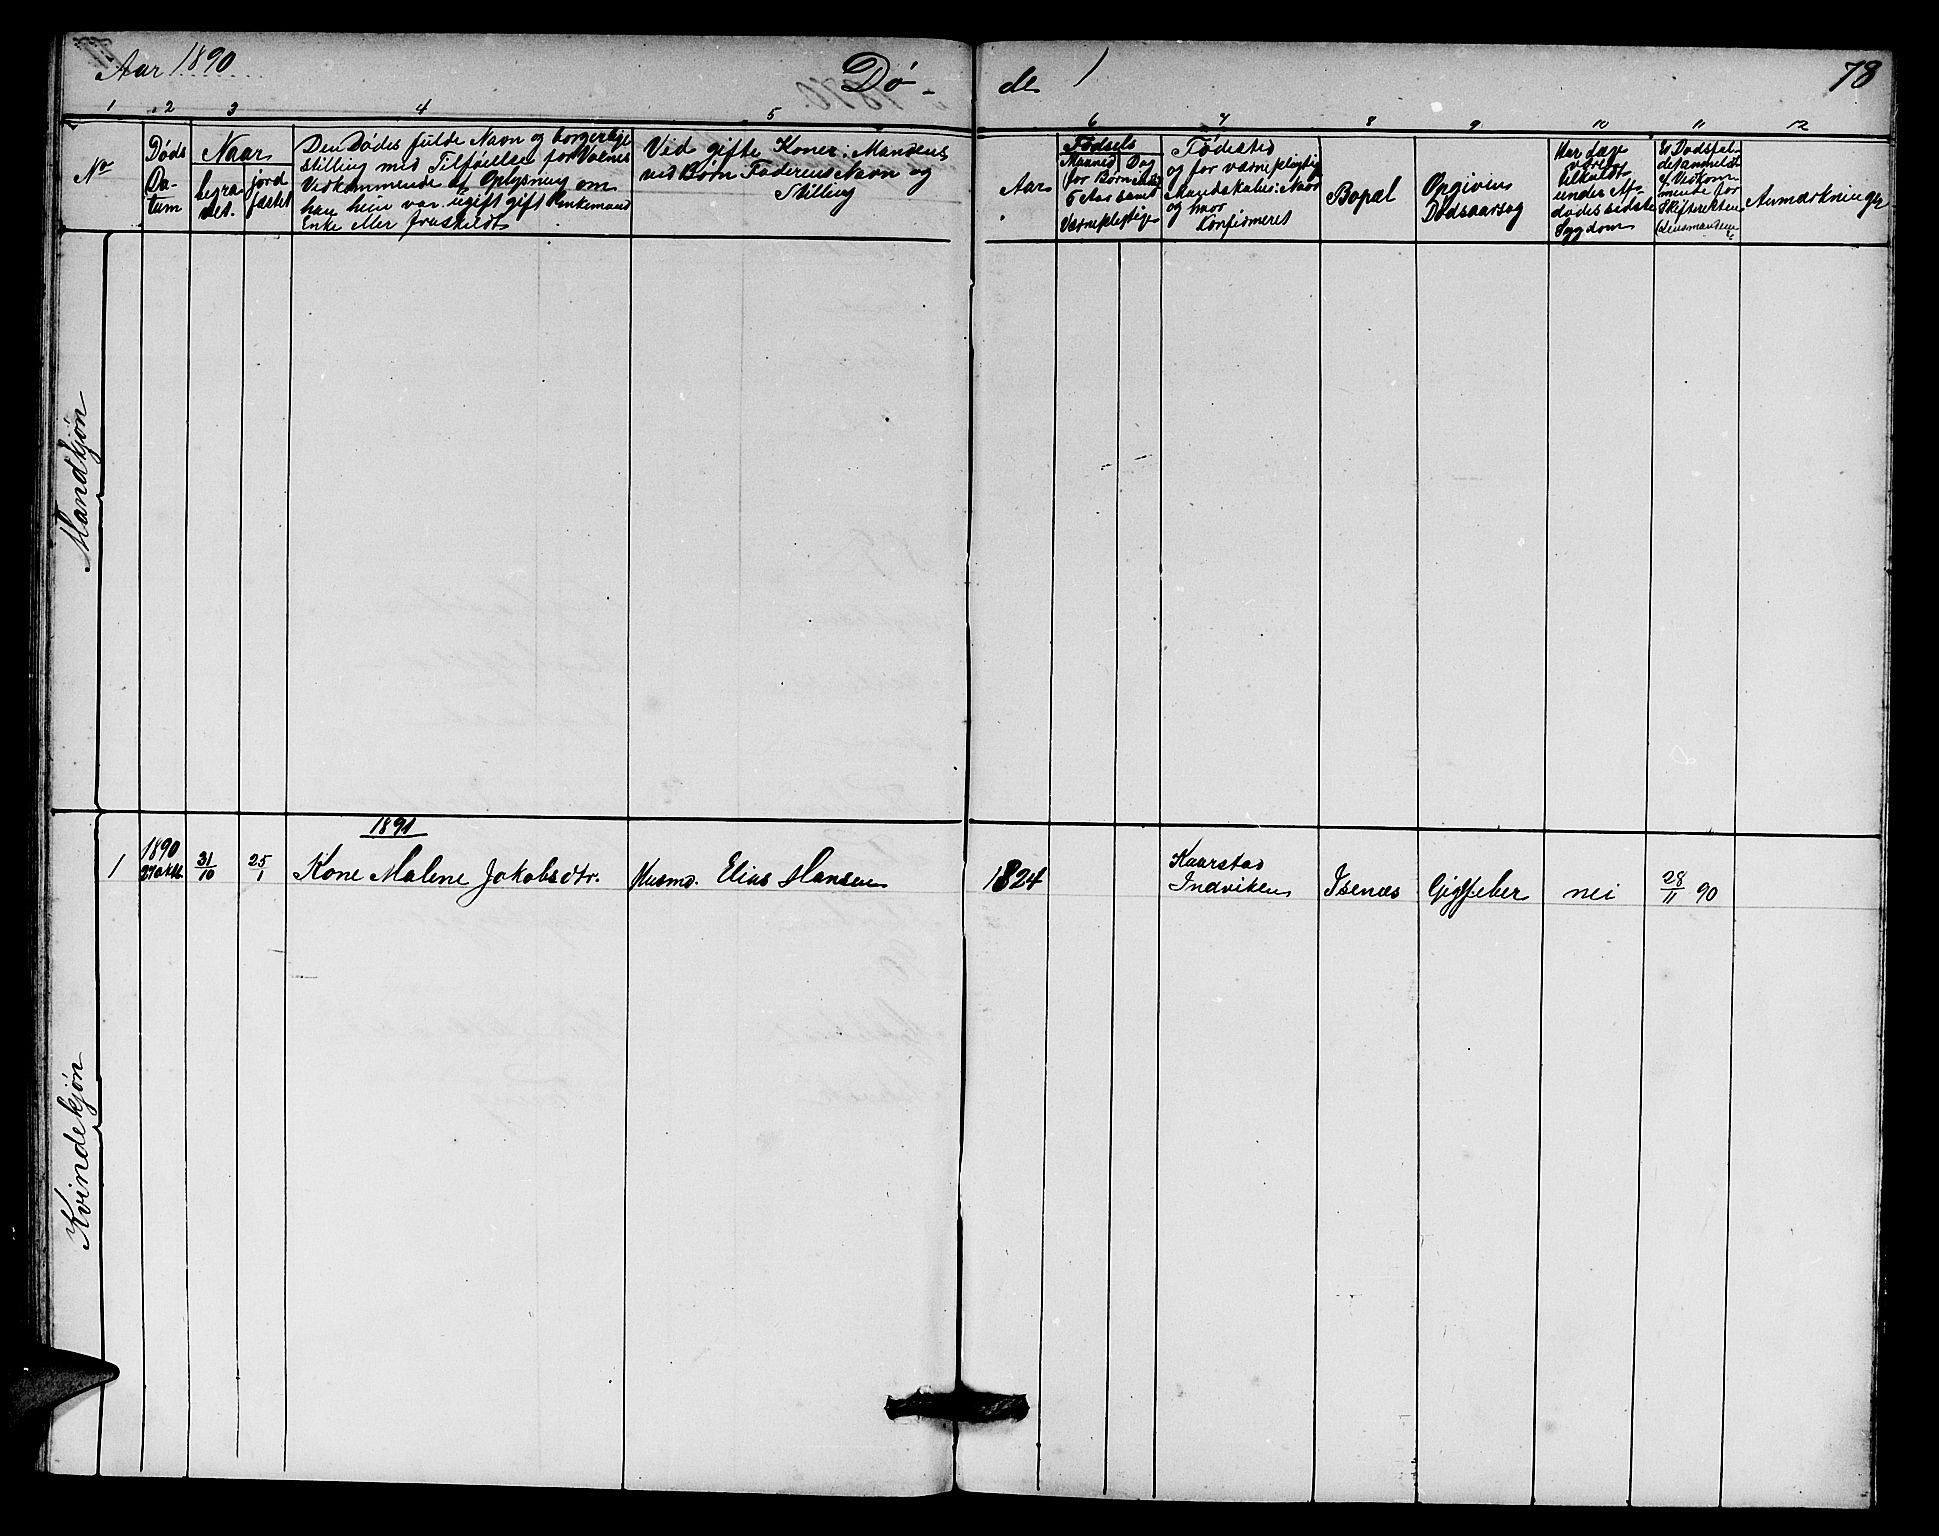 Aar 1890
Dø-
de
1
78
1 2 3 4 5
6 7 8 9 10 11 12
No
Døds
Da-
tum
Naar
begra
det.
jord
fæstet
Den Dødes fulde Navn og borgerlige
Stilling med Tilføielse for Voxnes
Vedkommende af Oplysning om
han hun var ugift gift Enkemand
Enke eller fraskildt
Vid gifte Koner: Mandens
ved Børn Faderens Navn og
Stilling
Aar
Fødsels
Maaned Dag
for Børn under
5 Aar samt
Værnepligtige
Fødested
og for værnepligtig
Mandskaber: Naar
og hvor
Konfirmeret
Bopæl
Opgiven
Dødsaarsag
Har Læge
været
tilkaldt
under Af-
dødes sidste
Sygdom
Er Dødsfal-
det anmeldt
af Vedkom-
mende for
Skifteretten
(Lensmanden
Anmærkninger
Mandkjøn
1891
1 1890 27 oktb. 31/10 25/1 Kone Malene Jakobsdtr. Husmd. Elias Hansen 1824 Kaarstad Indviken Isenæs Gigtfeber nei 28/11 90
Kvindekjøn